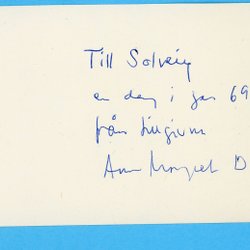 Till Solveig
en dag i jan 69
från
Ann D